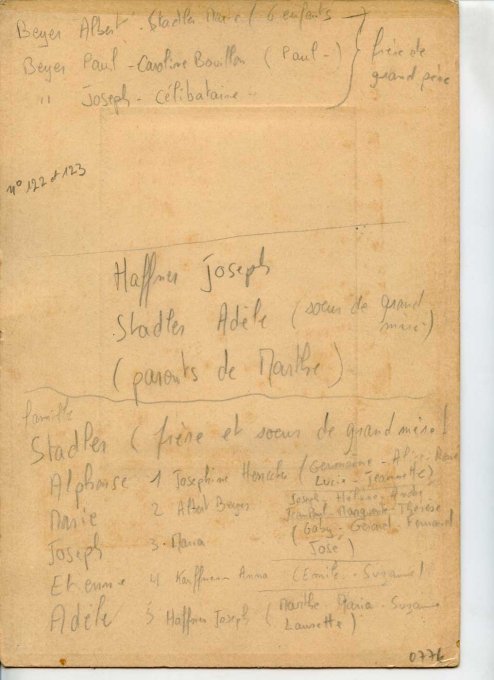 Beyer Albert - Stadler Marie ( 6 enfants
Beyer Paul - Caroline Bouillon ( Paul - )
" Joseph - Célibataire -
frère de
grand père
n° 122 et 123
Haffner Joseph
Stadler Adèle ( soeur de grand
mère )
( parents de Marthe )
famille
Stadler ( frère et soeur de grand mère !
Alphonse 1 Josephine ( Germaine - Alice - René
Lucie - Jeannette )
Marie 2 Albert Beyer Joseph - Hélène - André
Marguerite - Thérèse
Joseph 3 - Maria ( Gaby - Gérard - Fernand
José )
Etienne 4 Kauffmann Anna ( Emile - Suzanne )
Adèle 5 Haffner Joseph ( Marthe - Maria - Suzanne
Laurette )
0776